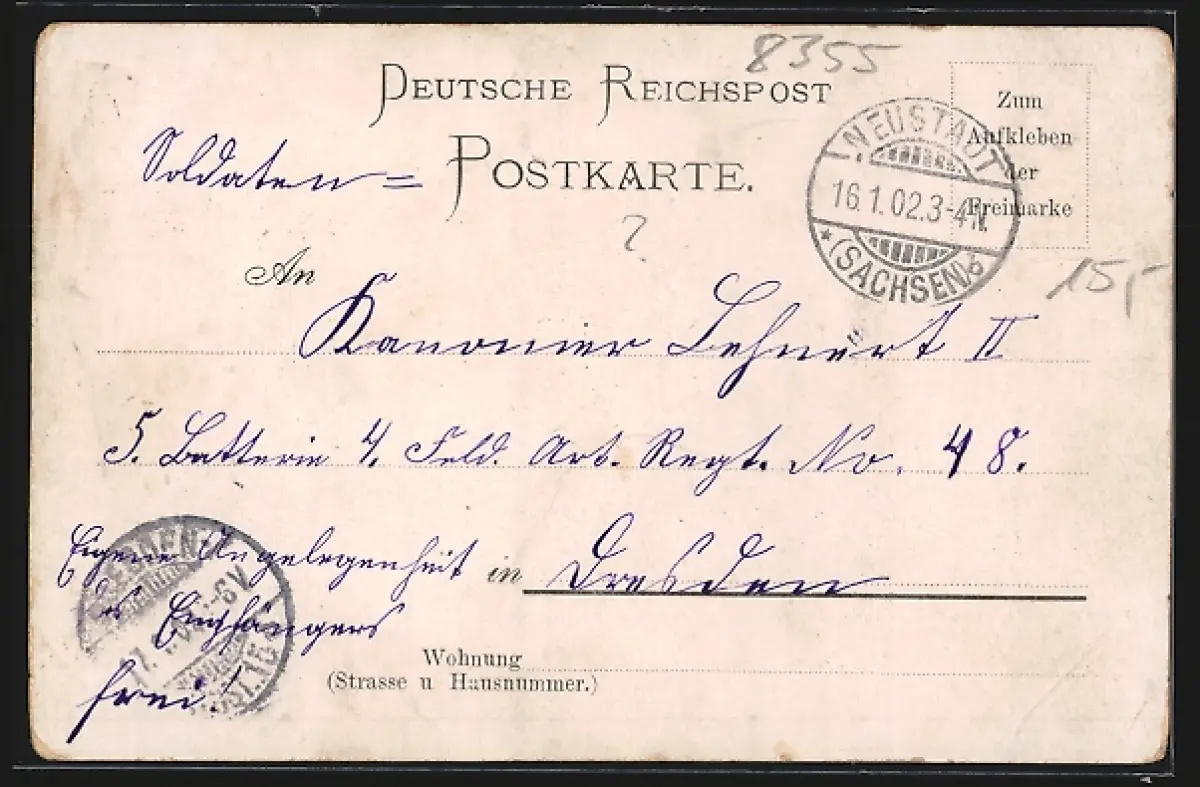 8355
DEUTSCHE REICHSPOST
Soldaten=
POSTKARTE.
Zum
Aufkleben
der
Freimarke
NEUSTADT
16.1.02.3-4N.
(SACHSEN)
15,-
?
An
Kanonier Lehnert II
5. Batterie 4. Feld. Art. Regt. No. 48.
Eigene Angelegenheit
in Dresden
des Empfängers
frei!
Wohnung
(Strasse u Hausnummer.)